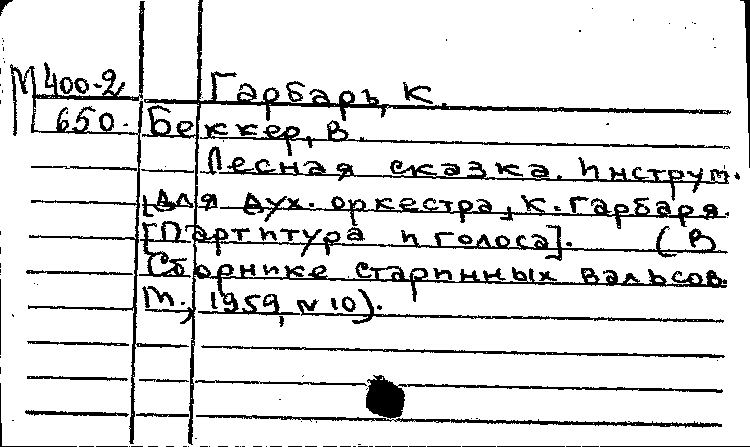 М 400-2 Гарбарь, К.
650. Беккер, В.
Лесная сказка. Инструм.
для дух. оркестра, К. Гарбаря.
[Партитура и голоса]. (В
Сборнике старинных вальсов.
М., 1959, № 10).